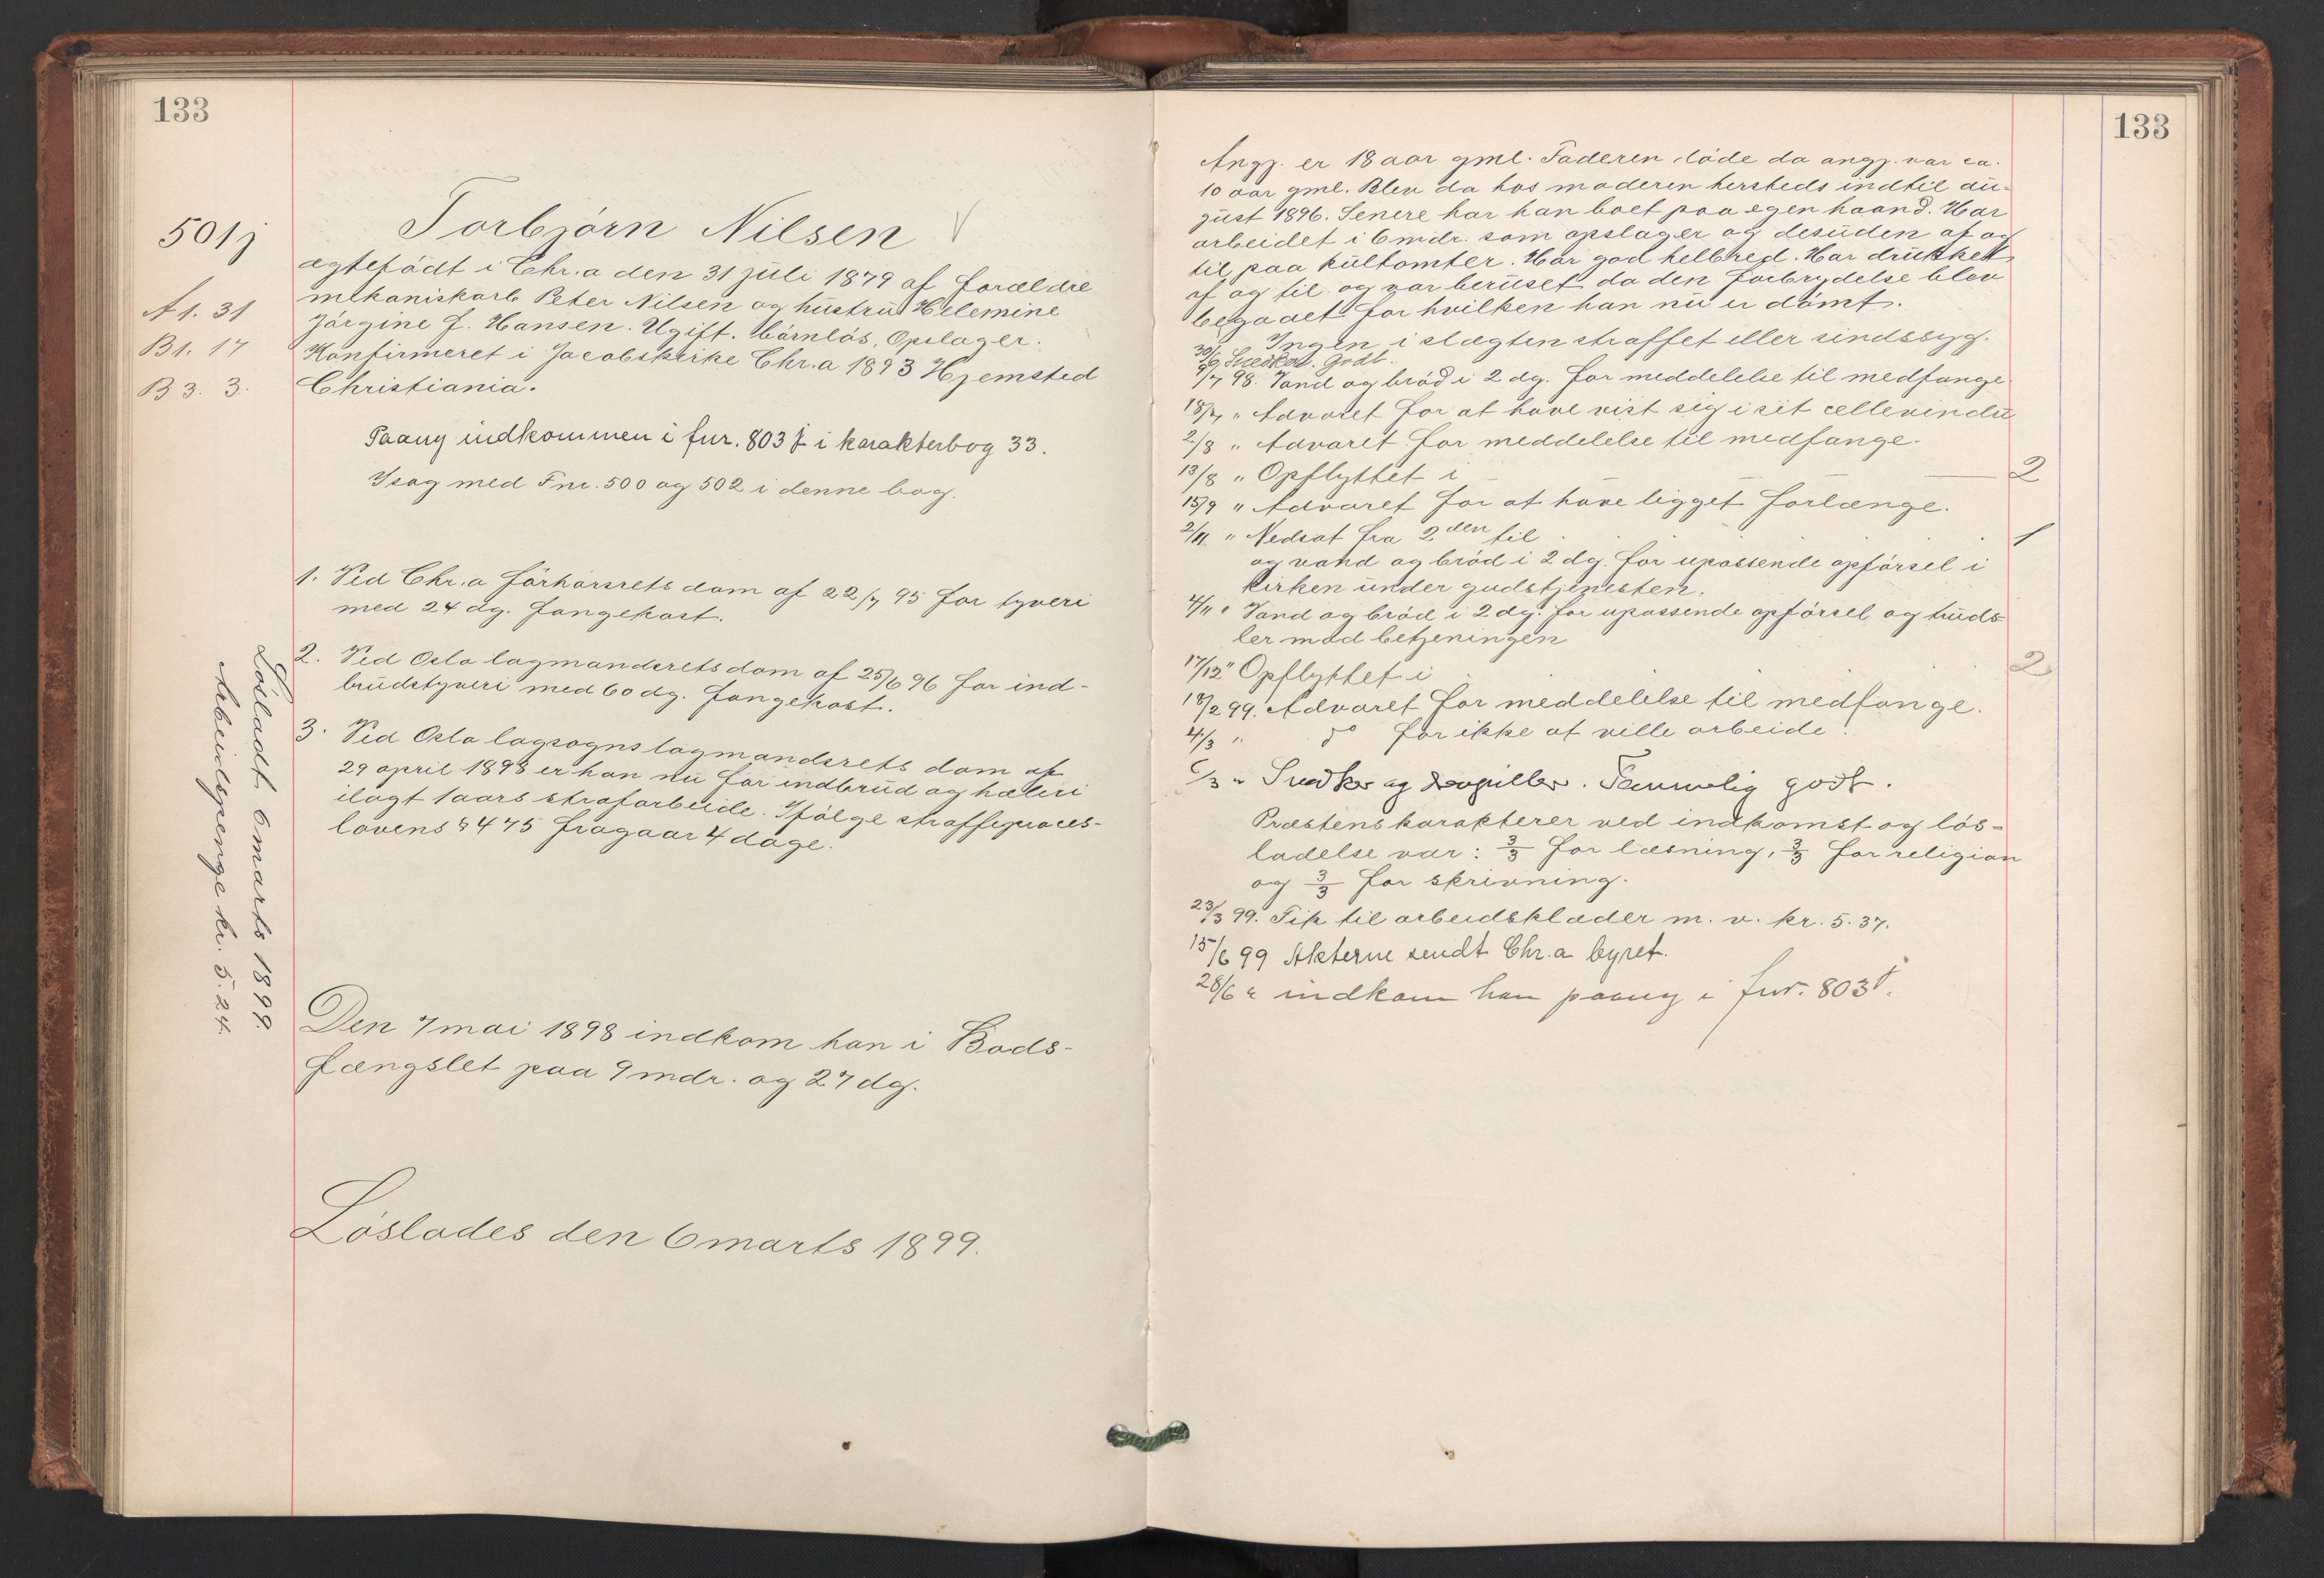 133
501j
A 1. 31
B 1. 17
B 3. 3.
Torbjörn Nilsen
ægtefödt i Chr.a den 31 juli 1879 af forældre
mekaniskarb. Peter Nilsen og hustru Helemine
Jörgine f. Hansen. Ugift. börnlös, Opslager.
Konfirmeret i Jacobskirke Chr.a 1893 Hjemsted
Christiania.
Paany indkommen i fnr. 803 j i karakterbog 33.
I sag med Fnr. 500 og 502 i denne bog.
1. Ved Chr.a förhörsrets dom af 22/7 95 for tyveri
med 24 dg. fangekost.
2. Ved Oslo lagmandsrets dom af 25/6 96 for ind-
brudstyveri med 60 dg. fangekost.
3. Ved Oslo lagsogns lagmandsrets dom af
29 april 1898 er han nu for indbrud og hæleri
ilagt 1 aars strafarbeide. Ifölge straffeproces-
lovens § 475 fragaar 4 dage.
Lösladt 6 marts 1899.
Arbeidspenge kr. 5.24.
Den 7 mai 1898 indkom han i Bods-
fængslet paa 9 mdr. og 27 dg.
Löslades den 6 marts 1899.
133
Angj. er 18 aar gml. Faderen döde da angj. var ca.
10 aar gml. Blev da hos moderen hersteds indtil au-
gust 1896. Senere har han boet paa egen haand. Har
arbeidet i 6 mdr. som opslager og desuden af og
til paa kultomter. Har god helbred. Har drukket
af og til og var beruset da den forbrydelse blev
begaaet for hvilken han nu er dömt.
Ingen i slægten straffet eller sindssyg.
30/6 Snedker. Godt.
9/7 98. Vand og bröd i 2 dg. for meddelelse til medfange.
18/7 " Advaret for at have vist sig i sit cellevindu
2/8 " Advaret for meddelelse til medfange.
13/8 " Opflyttet i 2
15/9 " Advaret for at have ligget forlænge.
2/11 " Nedsat fra 2den til 1
og vand og bröd i 2 dg. for upassende opförsel i
kirken under gudstjenesten.
4/11 " Vand og bröd i 2 dg. for upassende opförsel og truds-
ler mod betjeningen
17/12 " Opflyttet i 2
18/2 99. Advaret for meddelelse til medfange.
4/3 " do for ikke at ville arbeide.
6/3 " Snedker og. Temmelig godt.
Præstens karakterer ved indkomst og lös-
ladelse var: 3/3 for læsning, 3/3 for religion
og 3/3 for skrivning.
23/3 99. Fik til arbeidsklæder m. v. kr. 5.37.
15/6 99 Akterne sendt Chr.a byret.
28/6 " indkom han paany i fnr. 803 j.